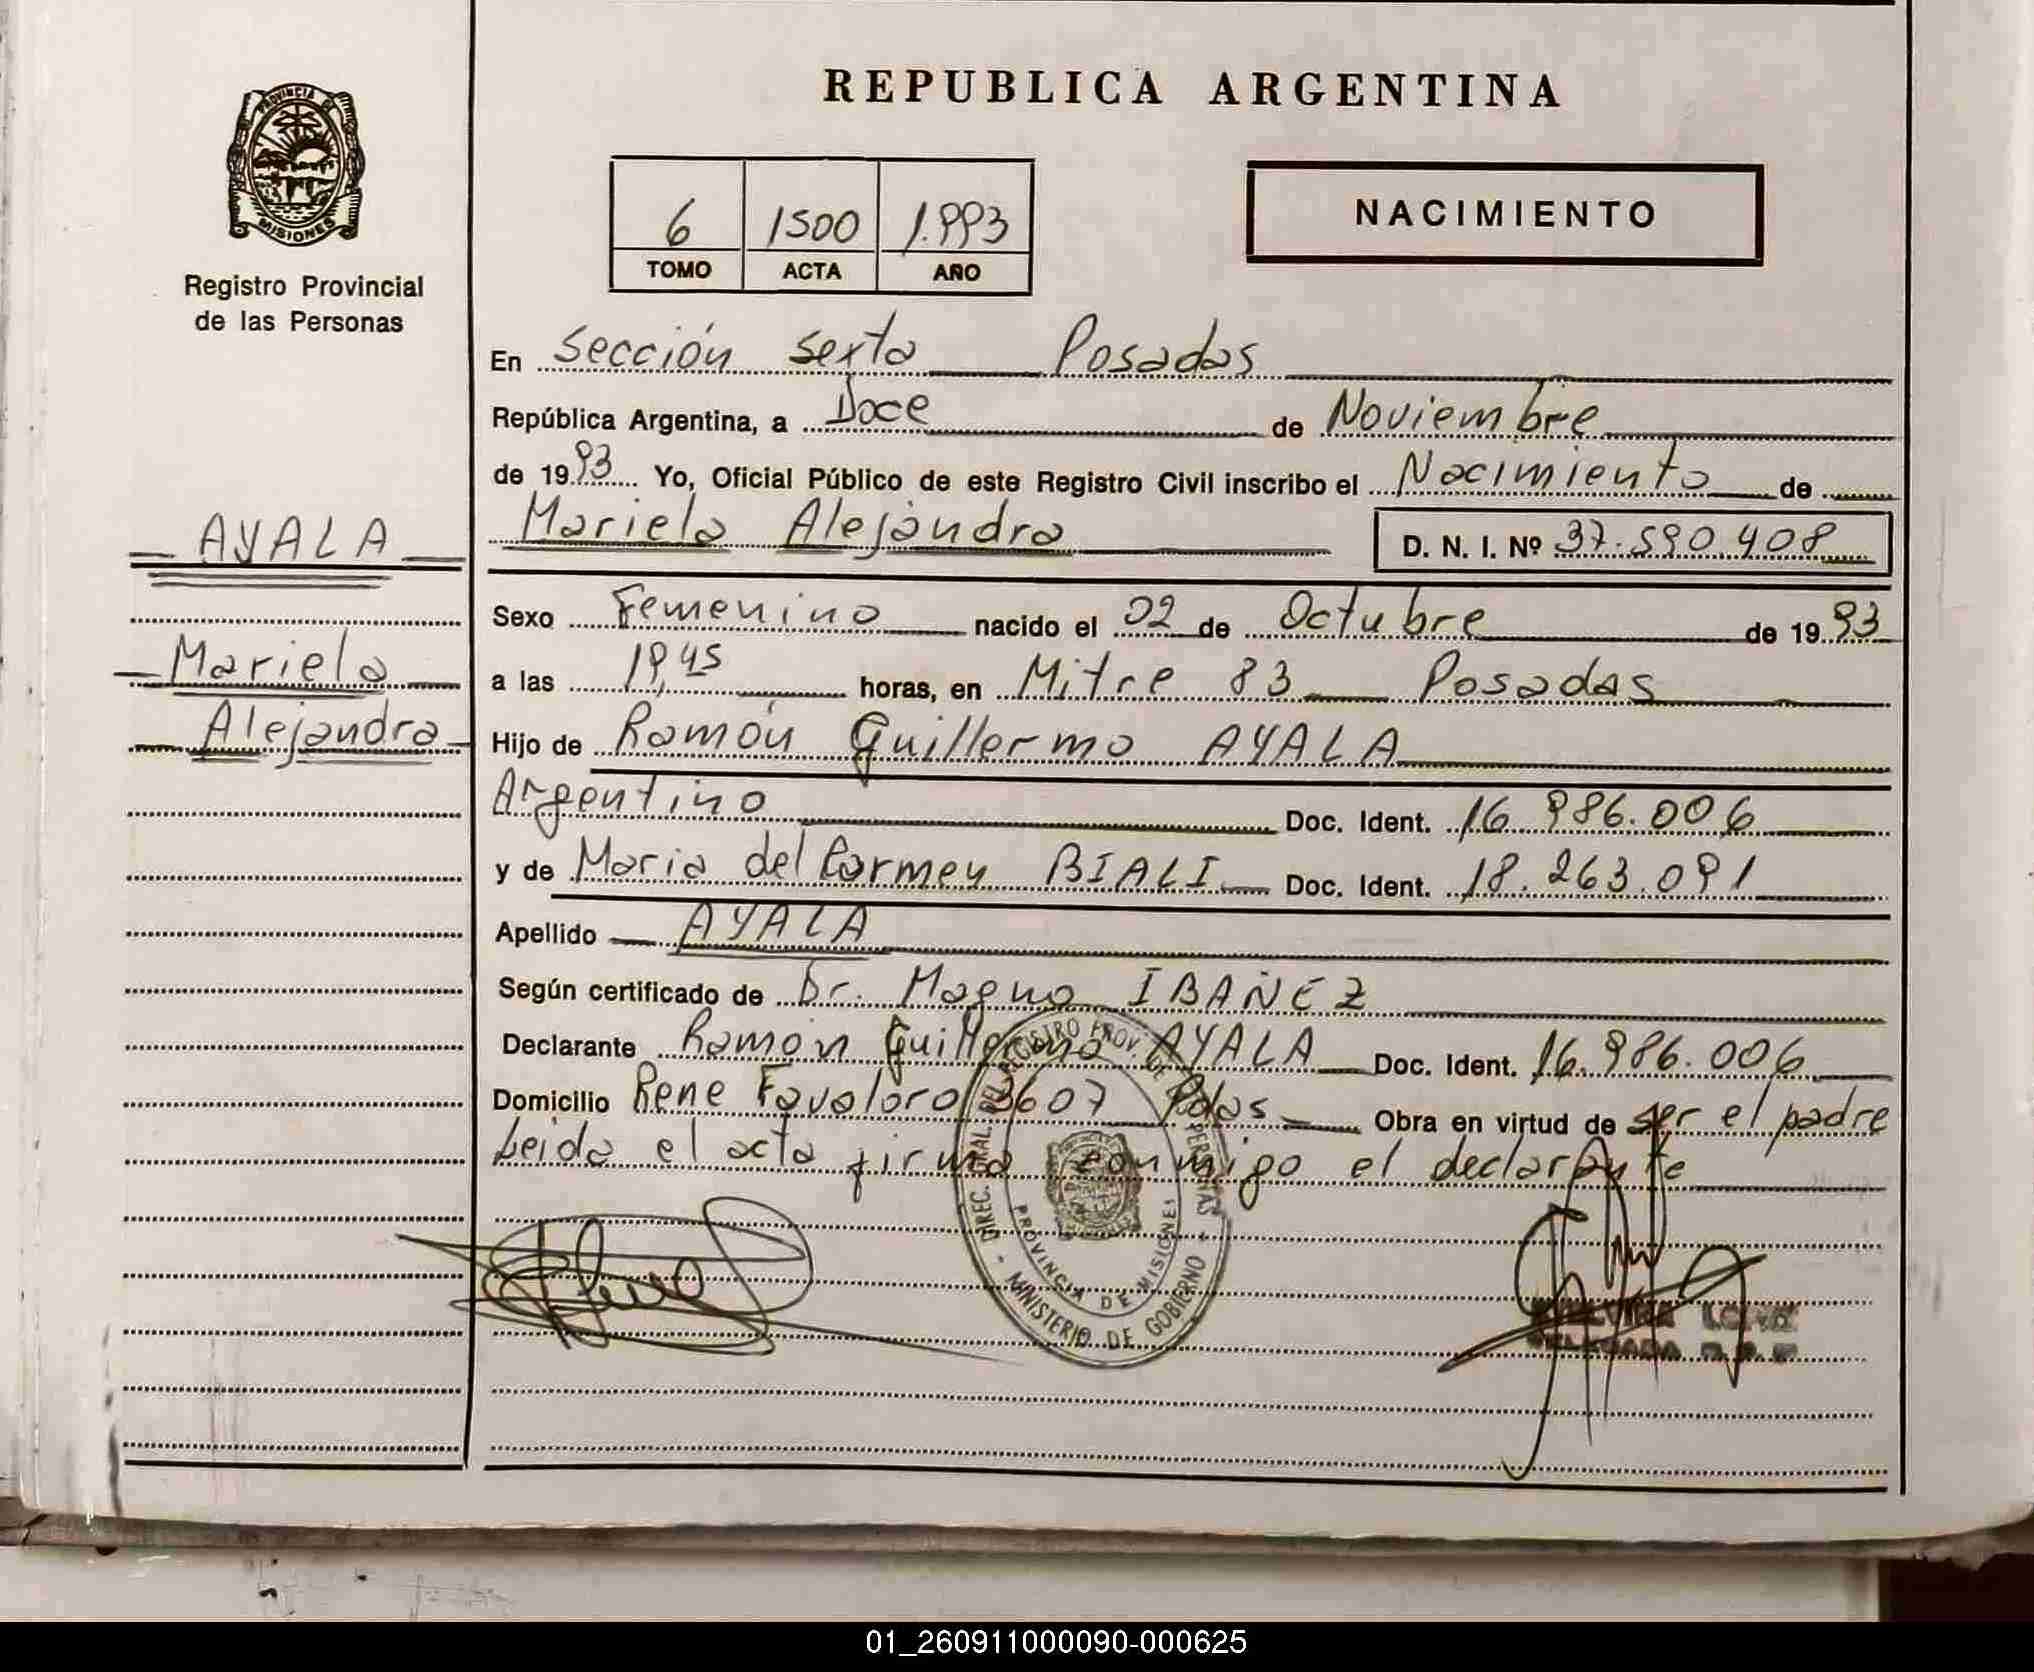 REPUBLICA ARGENTINA
PROVINCIA DE
MISIONES
Registro Provincial
de las Personas
6 1500 1.993
TOMO ACTA AÑO
NACIMIENTO
En Sección Sexta Posadas
República Argentina, a Doce de Noviembre
de 1993 Yo, Oficial Público de este Registro Civil inscribo el Nacimiento de
Mariela Alejandra D. N. I. Nº 37.590.408
AYALA
Mariela
Alejandra
Sexo Femenino nacido el 02 de Octubre de 1993
a las 19,45 horas, en Mitre 83 Posadas
Hijo de Ramón Guillermo AYALA
Argentino Doc. Ident. 16.986.006
y de Maria del Carmen BIALI Doc. Ident. 18.263.091
Apellido AYALA
Según certificado de Dr. Magno IBAÑEZ
Declarante Ramón Guillermo AYALA Doc. Ident. 16.986.006
Domicilio Rene Favaloro 3607 Pdas Obra en virtud de ser el padre
Leida el acta firma conmigo el declarante
DIREC. GRAL. DEL REGISTRO PROV. DE LAS PERSONAS
PROVINCIA DE MISIONES
- MINISTERIO DE GOBIERNO -
01_260911000090-000625